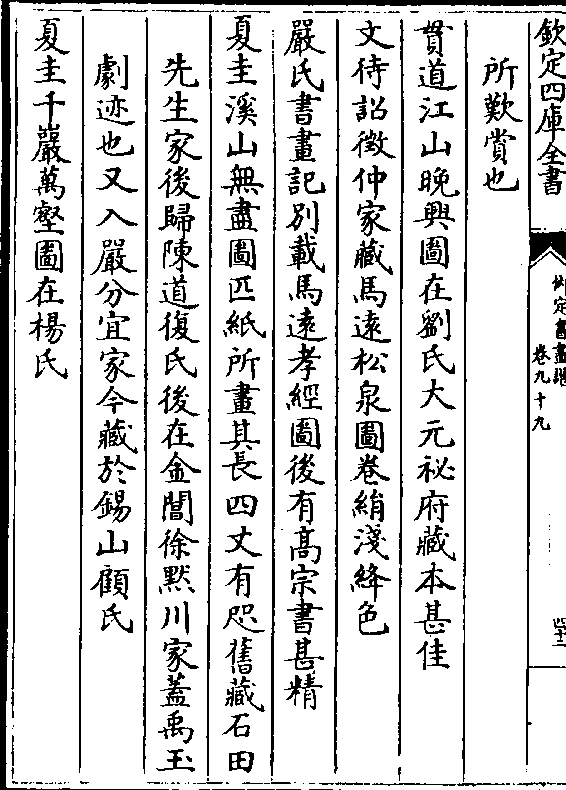 欽定四庫全書
所歎賞也
貫道江山晚興圖在劉氏大元祕府藏本甚佳
文待詔徵仲家藏馬遠松泉圖卷絹淺絳色
嚴氏書畫記別載馬遠孝經圖後有髙宗書甚精
夏圭溪山無盡圖匹紙所畫其長四丈有咫舊藏石田
先生家後歸陳道復氏後在金閶徐默川家葢禹玉
劇迹也又入嚴分宜家今藏於錫山顧氏
夏圭千巖萬壑圖在楊氏
御定書畫譜
卷九十九